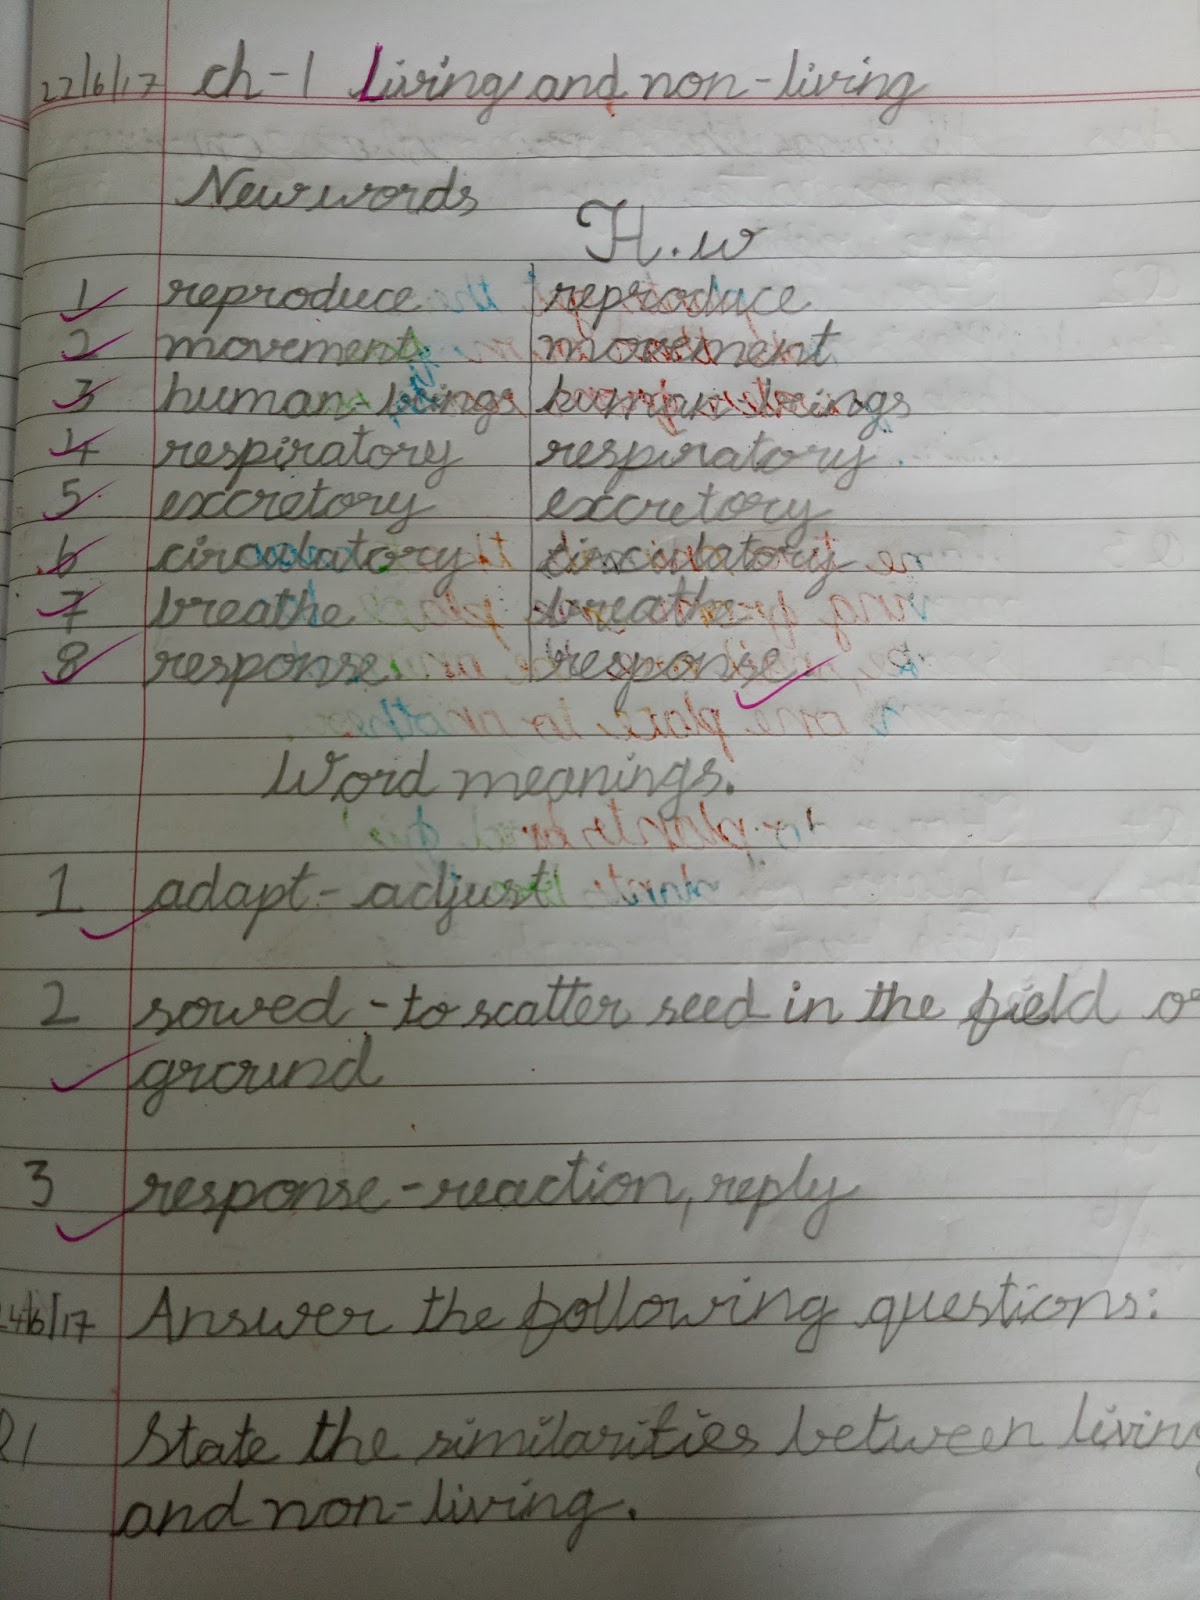 22/6/17 ch-1 Living and non-living
New words
H.w
1 reproduce reproduce
2 movement movement
3 human-beings human-beings
4 respiratory respiratory.
5 excretory excretory
6 circulatory circulatory
7 breathe breathe
8 response response
Word meanings.
1 adapt - adjust
2 sowed - to scatter seed in the field or
ground
3 response - reaction, reply
24/6/17 Answer the following questions:
Q1 State the similarities between living
and non-living.